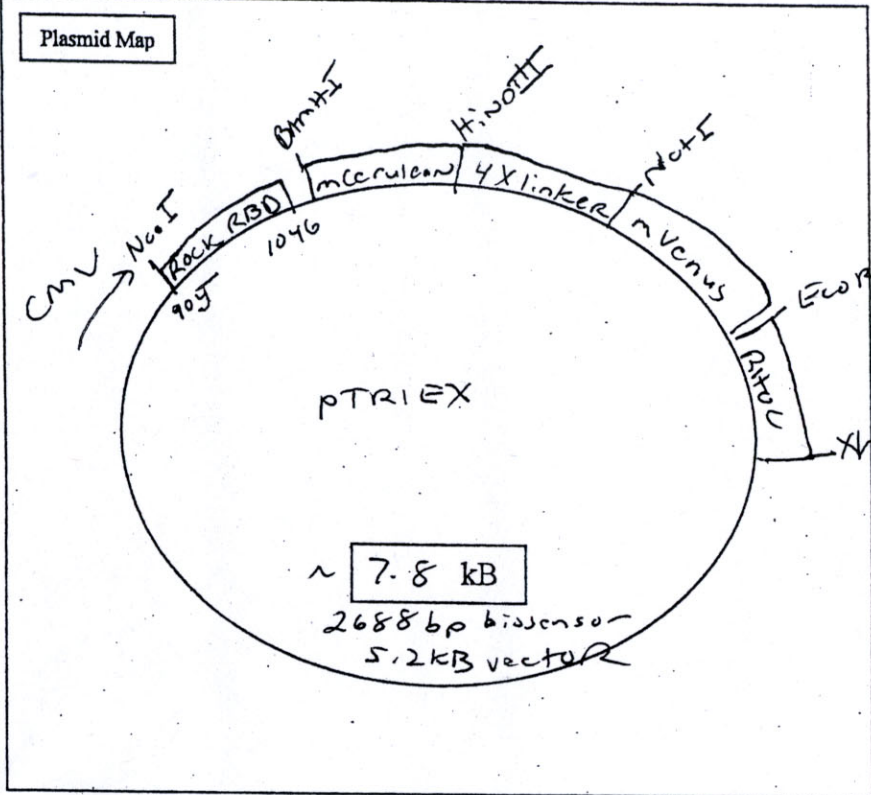 Plasmid Map
CMV
NcoI
ROCK RBD
905
1046
BAmHI
mCerulean
HiNDIII
4X linker
NotI
mVenus
EcoR
RHOC
pTRIEX
~ 7.8 kB
2688 bp biosensor
5.2KB vectoR